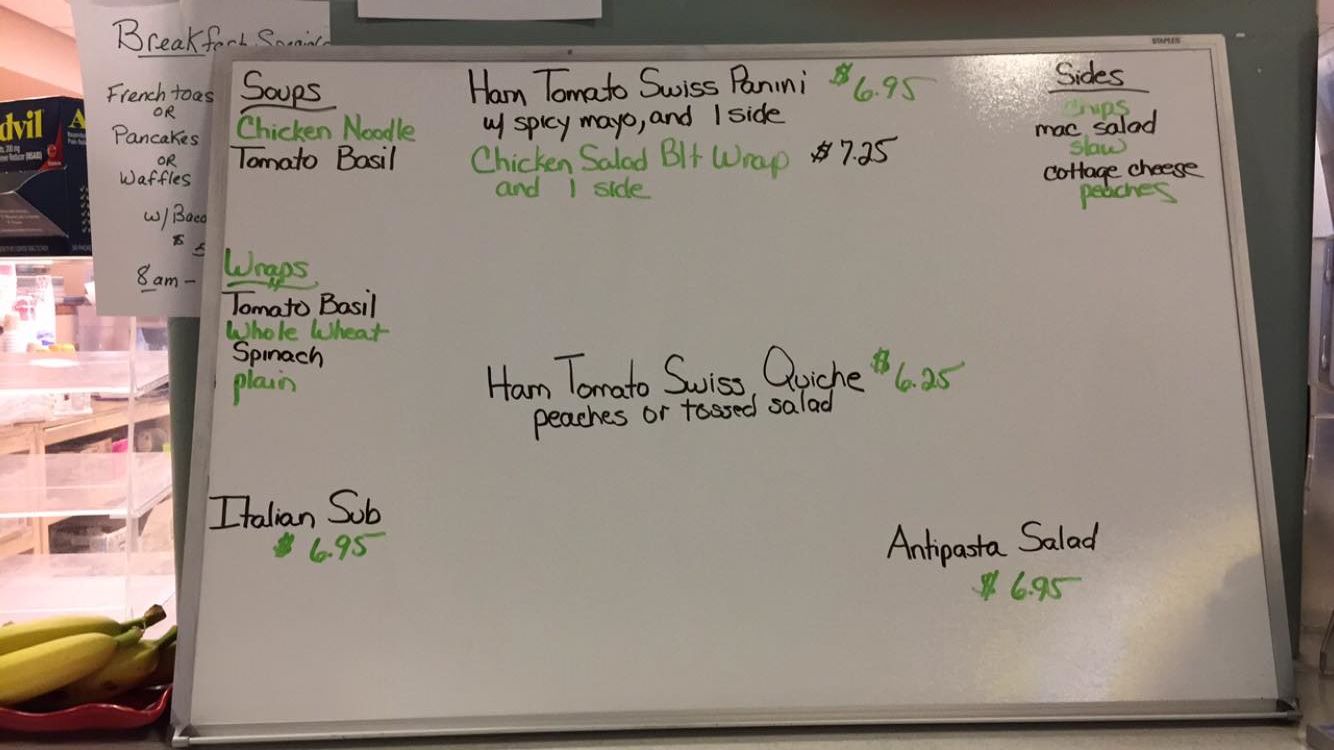 Breakfast
French toas
OR
Pancakes
OR
Waffles
w/Baco
$ 5
8am -
dvil
STAPLES
Soups
Chicken Noodle
Tomato Basil
Wraps
Tomato Basil
Whole Wheat
Spinach
plain
Italian Sub
$ 6.95
Ham Tomato Swiss Panini $6.95
w/ spicy mayo, and 1 side
Chicken Salad Blt Wrap $7.25
and 1 side
Ham Tomato Swiss Quiche $6.25
peaches or tossed salad
Sides
Chips
mac salad
slaw
cottage cheese
peaches
Antipasta Salad
$ 6.95